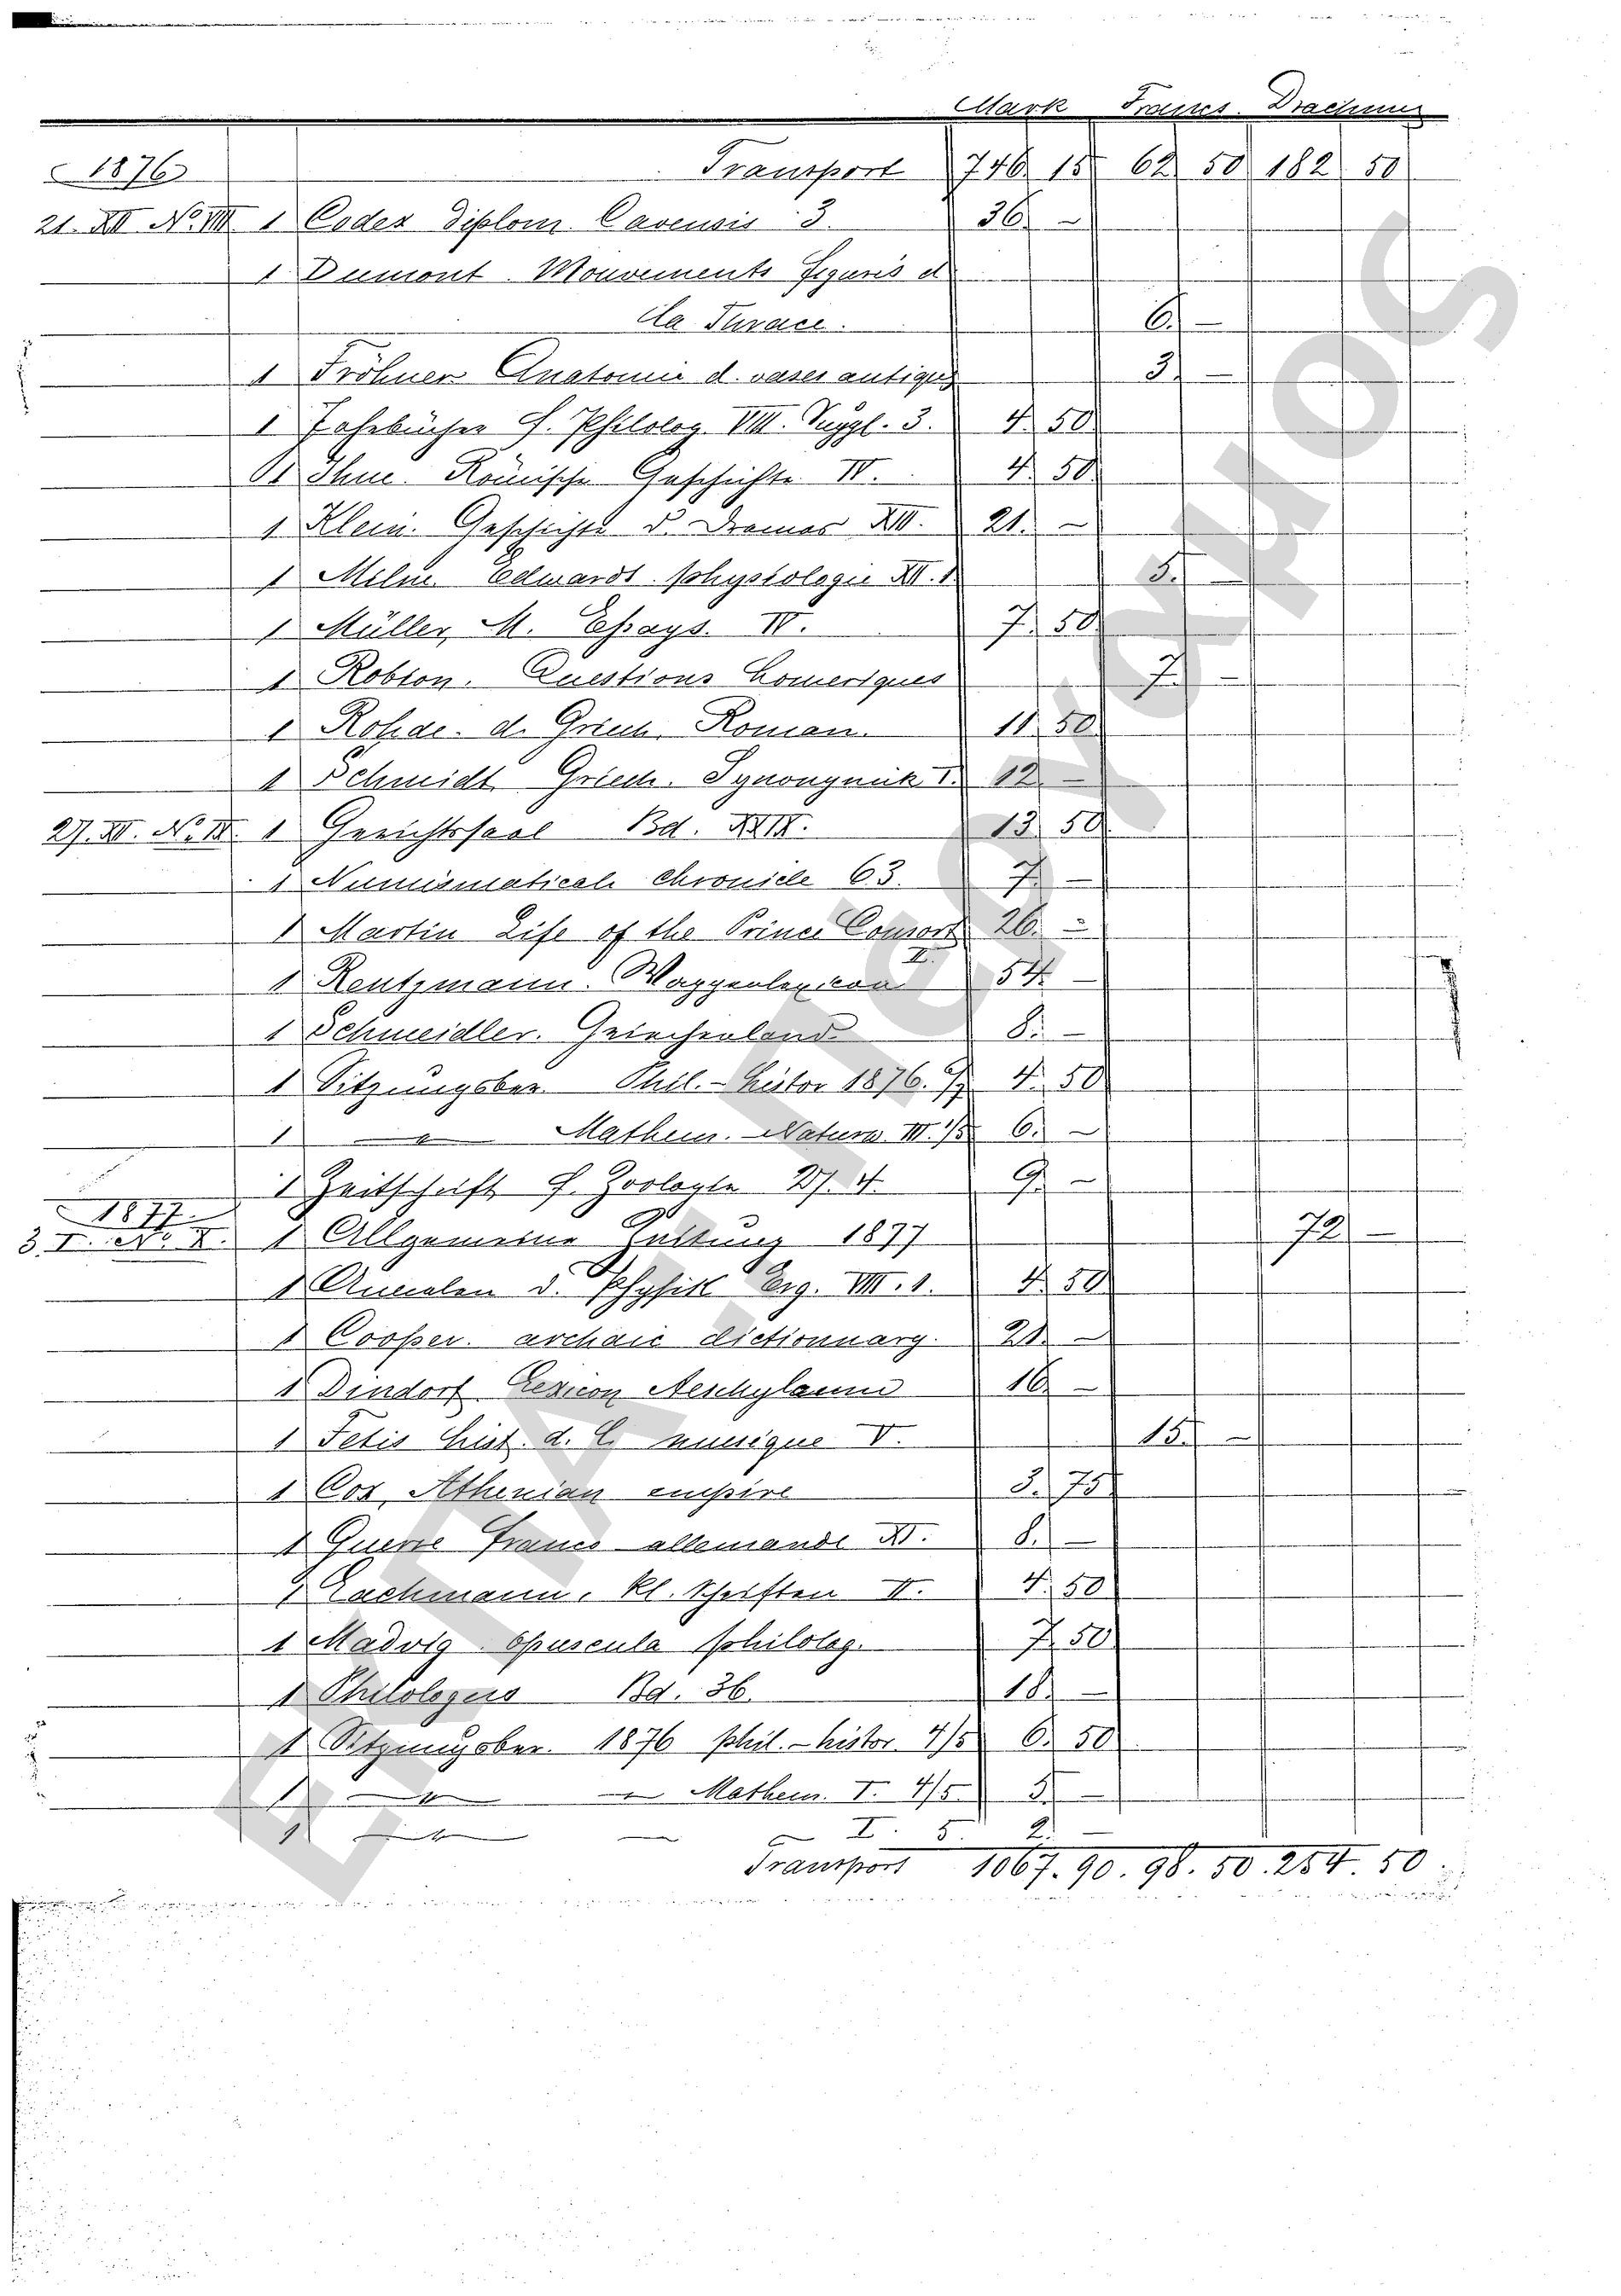 Mark Francs. Drachmen
1876 Transport 746. 15 62 50 182 50
21. XII No. VIII 1 Codex diplom. Cavensis 3. 36. –
1 Dumont. Monuments figurés d
la Thrace. 6. –
1 Fröhner Anatomie d. vases antiques 3. –
1 Jahrbücher f. Philolog. VIII. Suppl. 3. 4. 50
1 Ihne. Römische Geschichte IV. 4. 50
1 Klein. Geschichte d. Dramas XII. 21. –
1 Milne Edwards physiologie XII. 1. 5. –
1 Müller, M. Essays. IV. 7. 50
1 Robiou. Questions homeriques 7. –
1 Rohde. d. Griech. Roman. 11. 50
1 Schmidt Griech. Synonymik I. 12. –
27. XII. No. IX. 1 Gerichtssaal Bd. XXIX. 13. 50
1 Numismatical chronicle 63. 7. –
1 Martin Life of the Prince Consort II. 26. –
1 Rentzmann. Wappenlexicon 54. –
1 Schmeidler. Griechenland 8. –
1 Sitzungsber. Phil.-histor 1876. 4. 50
1 – " – Mathem. – Naturw. III. 1/5 6. –
1 Zeitschrift f. Zoologie 27. 4. 9. –
1877
3. I. No. X. 1 Allgemeine Zeitung 1877 72. –
1 Annalen d. Physik Erg. VIII. 1. 4. 50
1 Cooper. archaic dictionnary. 21. –
1 Dindorf Lexicon Aeschyleum 16. –
1 Fetis hist. d. l. musique V. 15. –
1 Cox, Athenian empire 3. 75
1 Guerre franco-allemande XI. 8. –
1 Lachmann, kl. Schriften II. 4. 50
1 Madvig. opuscula philolog. 7. 50
1 Philologus Bd. 36. 18. –
1 Sitzungsber. 1876 phil.-histor. 4/5 6. 50
1 – " – – Mathem. I. 4/5. 5. –
1 – " – – – II. 5. 2. –
Transport 1067. 90. 98. 50. 254. 50.